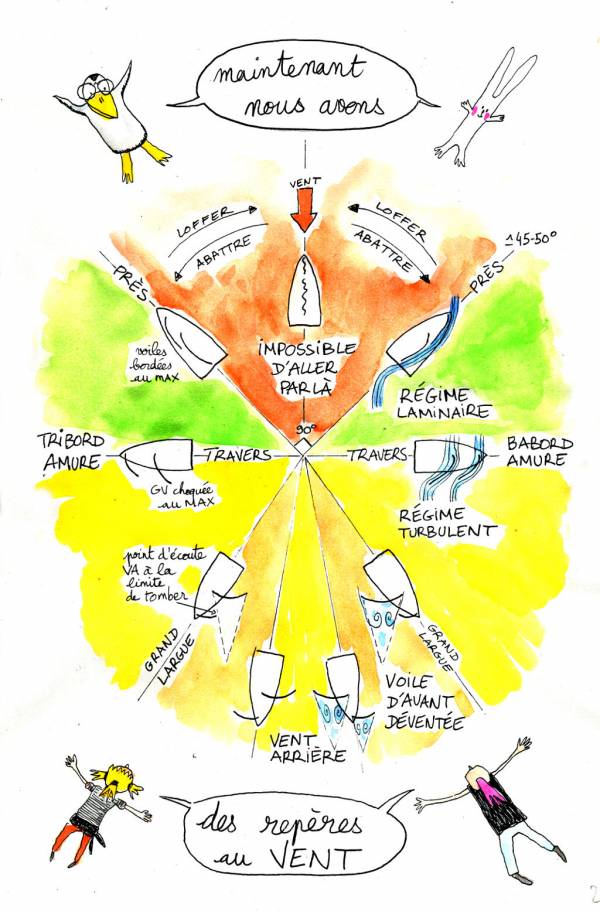 maintenant
nous avons
VENT
LOFFER
ABATTRE
LOFFER
ABATTRE
≃45-50°
PRÈS
PRÈS
voiles
bordées
au MAX
IMPOSSIBLE
D'ALLER
PAR LÀ
RÉGIME
LAMINAIRE
90°
TRIBORD
AMURE
TRAVERS
TRAVERS
BABORD
AMURE
GV choquée
au MAX
RÉGIME
TURBULENT
point d'écoute
VA à la
limite
de tomber
GRAND
LARGUE
GRAND
LARGUE
VOILE
D'AVANT
DÉVENTÉE
VENT
ARRIÈRE
des repères
au VENT
2